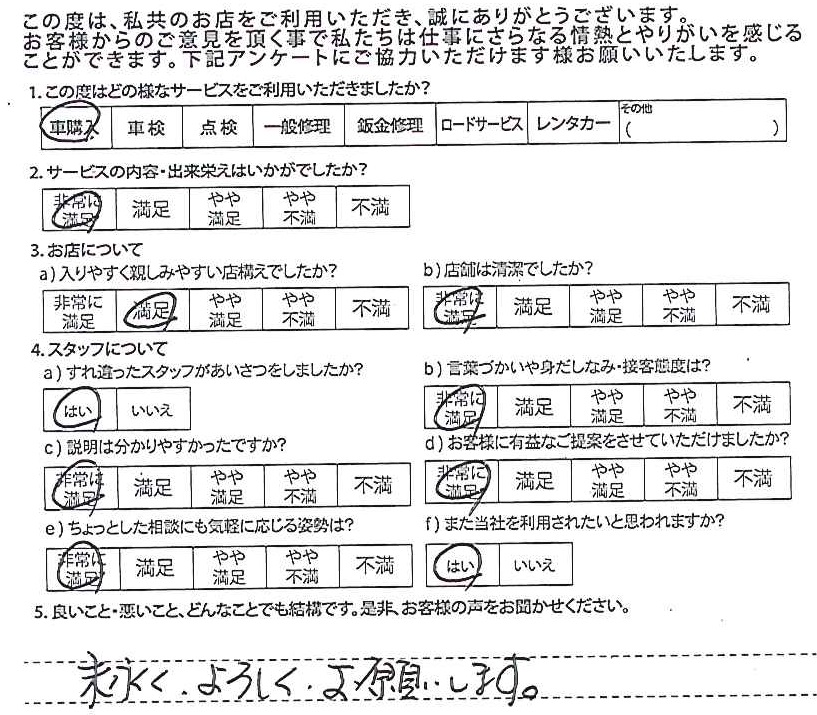 この度は、私共のお店をご利用いただき、誠にありがとうございます。
お客様からのご意見を頂く事で私たちは仕事にさらなる情熱とやりがいを感じる
ことができます。下記アンケートにご協力いただけます様お願いいたします。
1.この度はどの様なサービスをご利用いただきましたか?
車購入 車検 点検 一般修理 鈑金修理 ロードサービス レンタカー その他
( )
2.サービスの内容・出来栄えはいかがでしたか?
非常に満足 満足 やや満足 やや不満 不満
3.お店について
a)入りやすく親しみやすい店構えでしたか?
非常に満足 満足 やや満足 やや不満 不満
b)店舗は清潔でしたか?
非常に満足 満足 やや満足 やや不満 不満
4.スタッフについて
a)すれ違ったスタッフがあいさつをしましたか?
はい いいえ
b)言葉づかいや身だしなみ・接客態度は?
非常に満足 満足 やや満足 やや不満 不満
c)説明は分かりやすかったですか?
非常に満足 満足 やや満足 やや不満 不満
d)お客様に有益なご提案をさせていただけましたか?
非常に満足 満足 やや満足 やや不満 不満
e)ちょっとした相談にも気軽に応じる姿勢は?
非常に満足 満足 やや満足 やや不満 不満
f)また当社を利用されたいと思われますか?
はい いいえ
5.良いこと・悪いこと、どんなことでも結構です。是非、お客様の声をお聞かせください。
末永く、よろしく、お願いします。